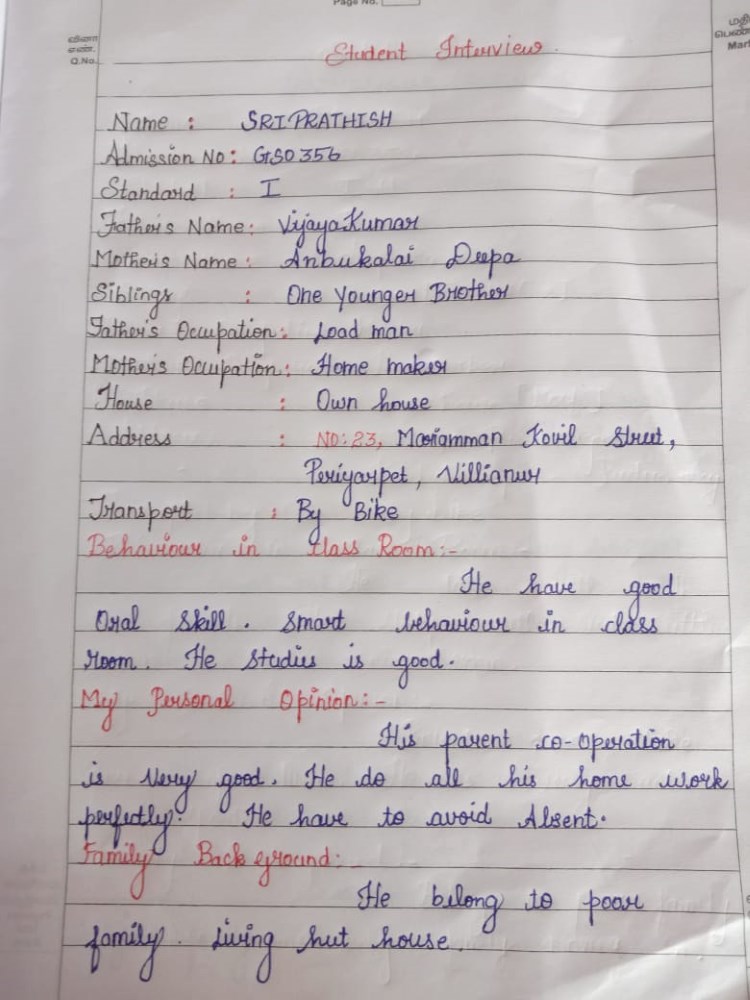 Page No.
வினா
எண்.
Q.No.
Student Interview.
Mar
Name : SRIPRATHISH
Admission No: GSO356
Standard : I
Father's Name: VijayaKumar
Mother's Name: Anbukalai Deepa
Siblings : One Younger Brother
Father's Occupation: Load man
Mother's Occupation: Home maker
House : Own house
Address : NO:23, Mariamman Kovil Street,
Periyarpet, Villianur
Transport : By Bike
Behaviour in Class Room:-
He have good
Oral Skill. Smart behaviour in class
room. He Studies is good.
My Personal Opinion:-
His parent co-operation
is Very good. He do all his home work
perfectly. He have to avoid Absent.
Family Back ground:-
He belong to poor
family. Living hut house.